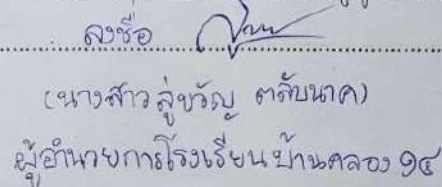 ลงชื่อ
(นางสาวสู่ขวัญ ตลับนาค)
ผู้อำนวยการโรงเรียนบ้านคลอง ๑๔